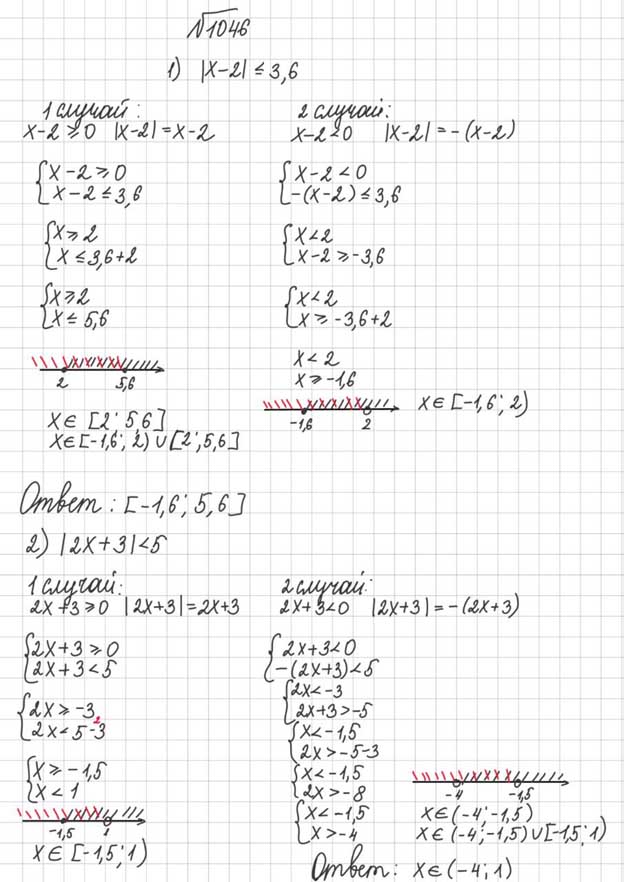 №1046
1) |x-2| ≤ 3,6
1 случай:
x-2 ≥ 0 |x-2| = x-2
{x-2 ≥ 0
x-2 ≤ 3,6
{x ≥ 2
x ≤ 3,6+2
{x ≥ 2
x ≤ 5,6
2 5,6
x ∈ [2; 5,6]
x ∈ [-1,6; 2) ∪ [2; 5,6]
2 случай:
x-2 < 0 |x-2| = -(x-2)
{x-2 < 0
-(x-2) ≤ 3,6
{x < 2
x-2 ≥ -3,6
{x < 2
x ≥ -3,6+2
x < 2
x ≥ -1,6
-1,6 2
x ∈ [-1,6; 2)
Ответ: [-1,6; 5,6]
2) |2x+3| < 5
1 случай:
2x+3 ≥ 0 |2x+3| = 2x+3
{2x+3 ≥ 0
2x+3 < 5
{2x ≥ -3
2x < 5-3
2
{x ≥ -1,5
x < 1
-1,5 1
x ∈ [-1,5; 1)
2 случай:
2x+3 < 0 |2x+3| = -(2x+3)
{2x+3 < 0
-(2x+3) < 5
{2x < -3
2x+3 > -5
{x < -1,5
2x > -5-3
{x < -1,5
2x > -8
{x < -1,5
x > -4
-4 -1,5
x ∈ (-4; -1,5)
x ∈ (-4; -1,5) ∪ [-1,5; 1)
Ответ: x ∈ (-4; 1)